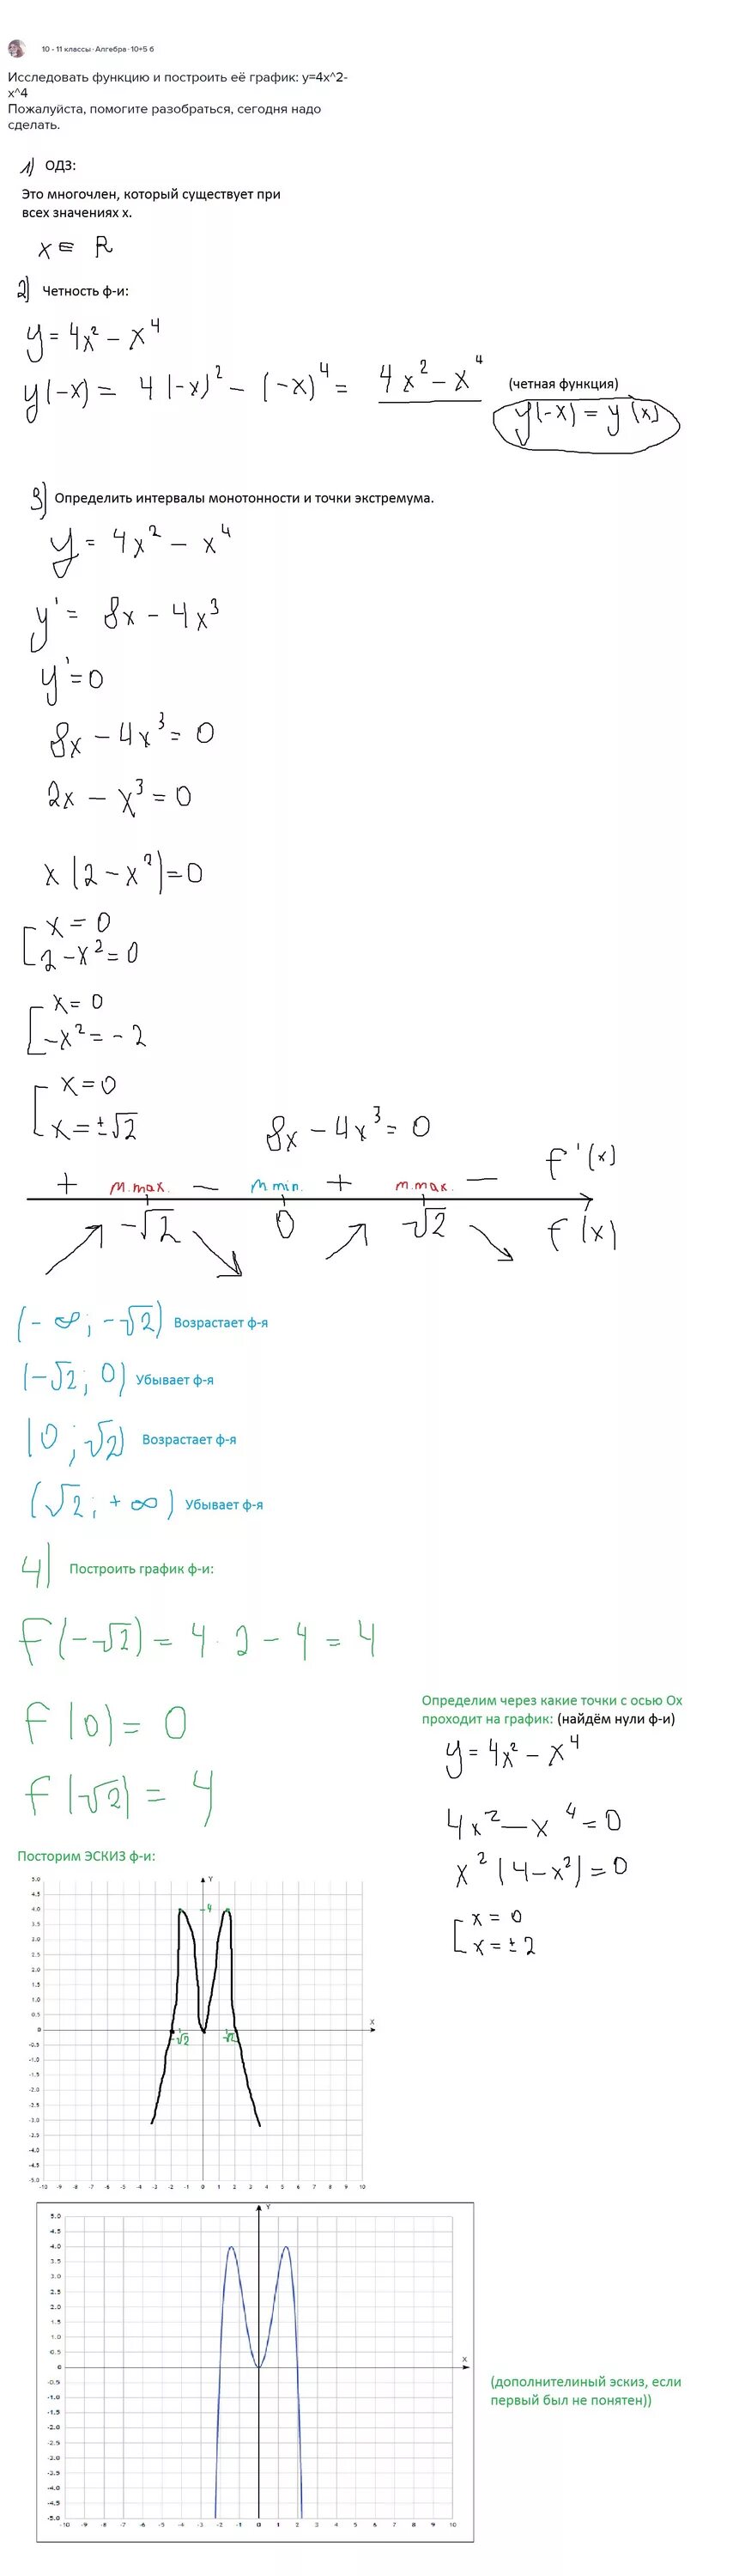 10 - 11 классы · Алгебра · 10+5 б
Исследовать функцию и построить её график: y=4x^2-
x^4
Пожалуйста, помогите разобраться, сегодня надо
сделать.
1) ОДЗ:
Это многочлен, который существует при
всех значениях x.
x ∈ R
2) Четность ф-и:
y = 4x² − x⁴
y(−x) = 4(−x)² − (−x)⁴ = 4x² − x⁴ (четная функция)
y(−x) = y(x)
3) Определить интервалы монотонности и точки экстремума.
y = 4x² − x⁴
y' = 8x − 4x³
y' = 0
8x − 4x³ = 0
2x − x³ = 0
x(2 − x²) = 0
[ x = 0
2 − x² = 0
[ x = 0
−x² = −2
[ x = 0
x = ±√2
8x − 4x³ = 0
+ м.max. − м min. + м.max. − f'(x)
−√2 0 √2 f(x)
(−∞; −√2) Возрастает ф-я
(−√2; 0) Убывает ф-я
(0; √2) Возрастает ф-я
(√2; +∞) Убывает ф-я
4) Построить график ф-и:
f(−√2) = 4 · 2 − 4 = 4
f(0) = 0
f(√2) = 4
Определим через какие точки с осью Ox
проходит на график: (найдём нули ф-и)
y = 4x² − x⁴
4x² − x⁴ = 0
x²(4 − x²) = 0
[ x = 0
x = ±2
Посторим ЭСКИЗ ф-и:
Y
5.0
4.5
4.0
4
3.5
3.0
2.5
2.0
1.5
1.0
0.5
X
0
−√2 √2
-0.5
-1.0
-1.5
-2.0
-2.5
-3.0
-3.5
-4.0
-4.5
-5.0
-10 -9 -8 -7 -6 -5 -4 -3 -2 -1 0 1 2 3 4 5 6 7 8 9 10
Y
5.0
4.5
4.0
3.5
3.0
2.5
2.0
1.5
1.0
0.5
X
0
-0.5
-1.0
-1.5
-2.0
-2.5
-3.0
-3.5
-4.0
-4.5
-5.0
-10 -9 -8 -7 -6 -5 -4 -3 -2 -1 0 1 2 3 4 5 6 7 8 9 10
(дополнителиный эскиз, если
первый был не понятен))